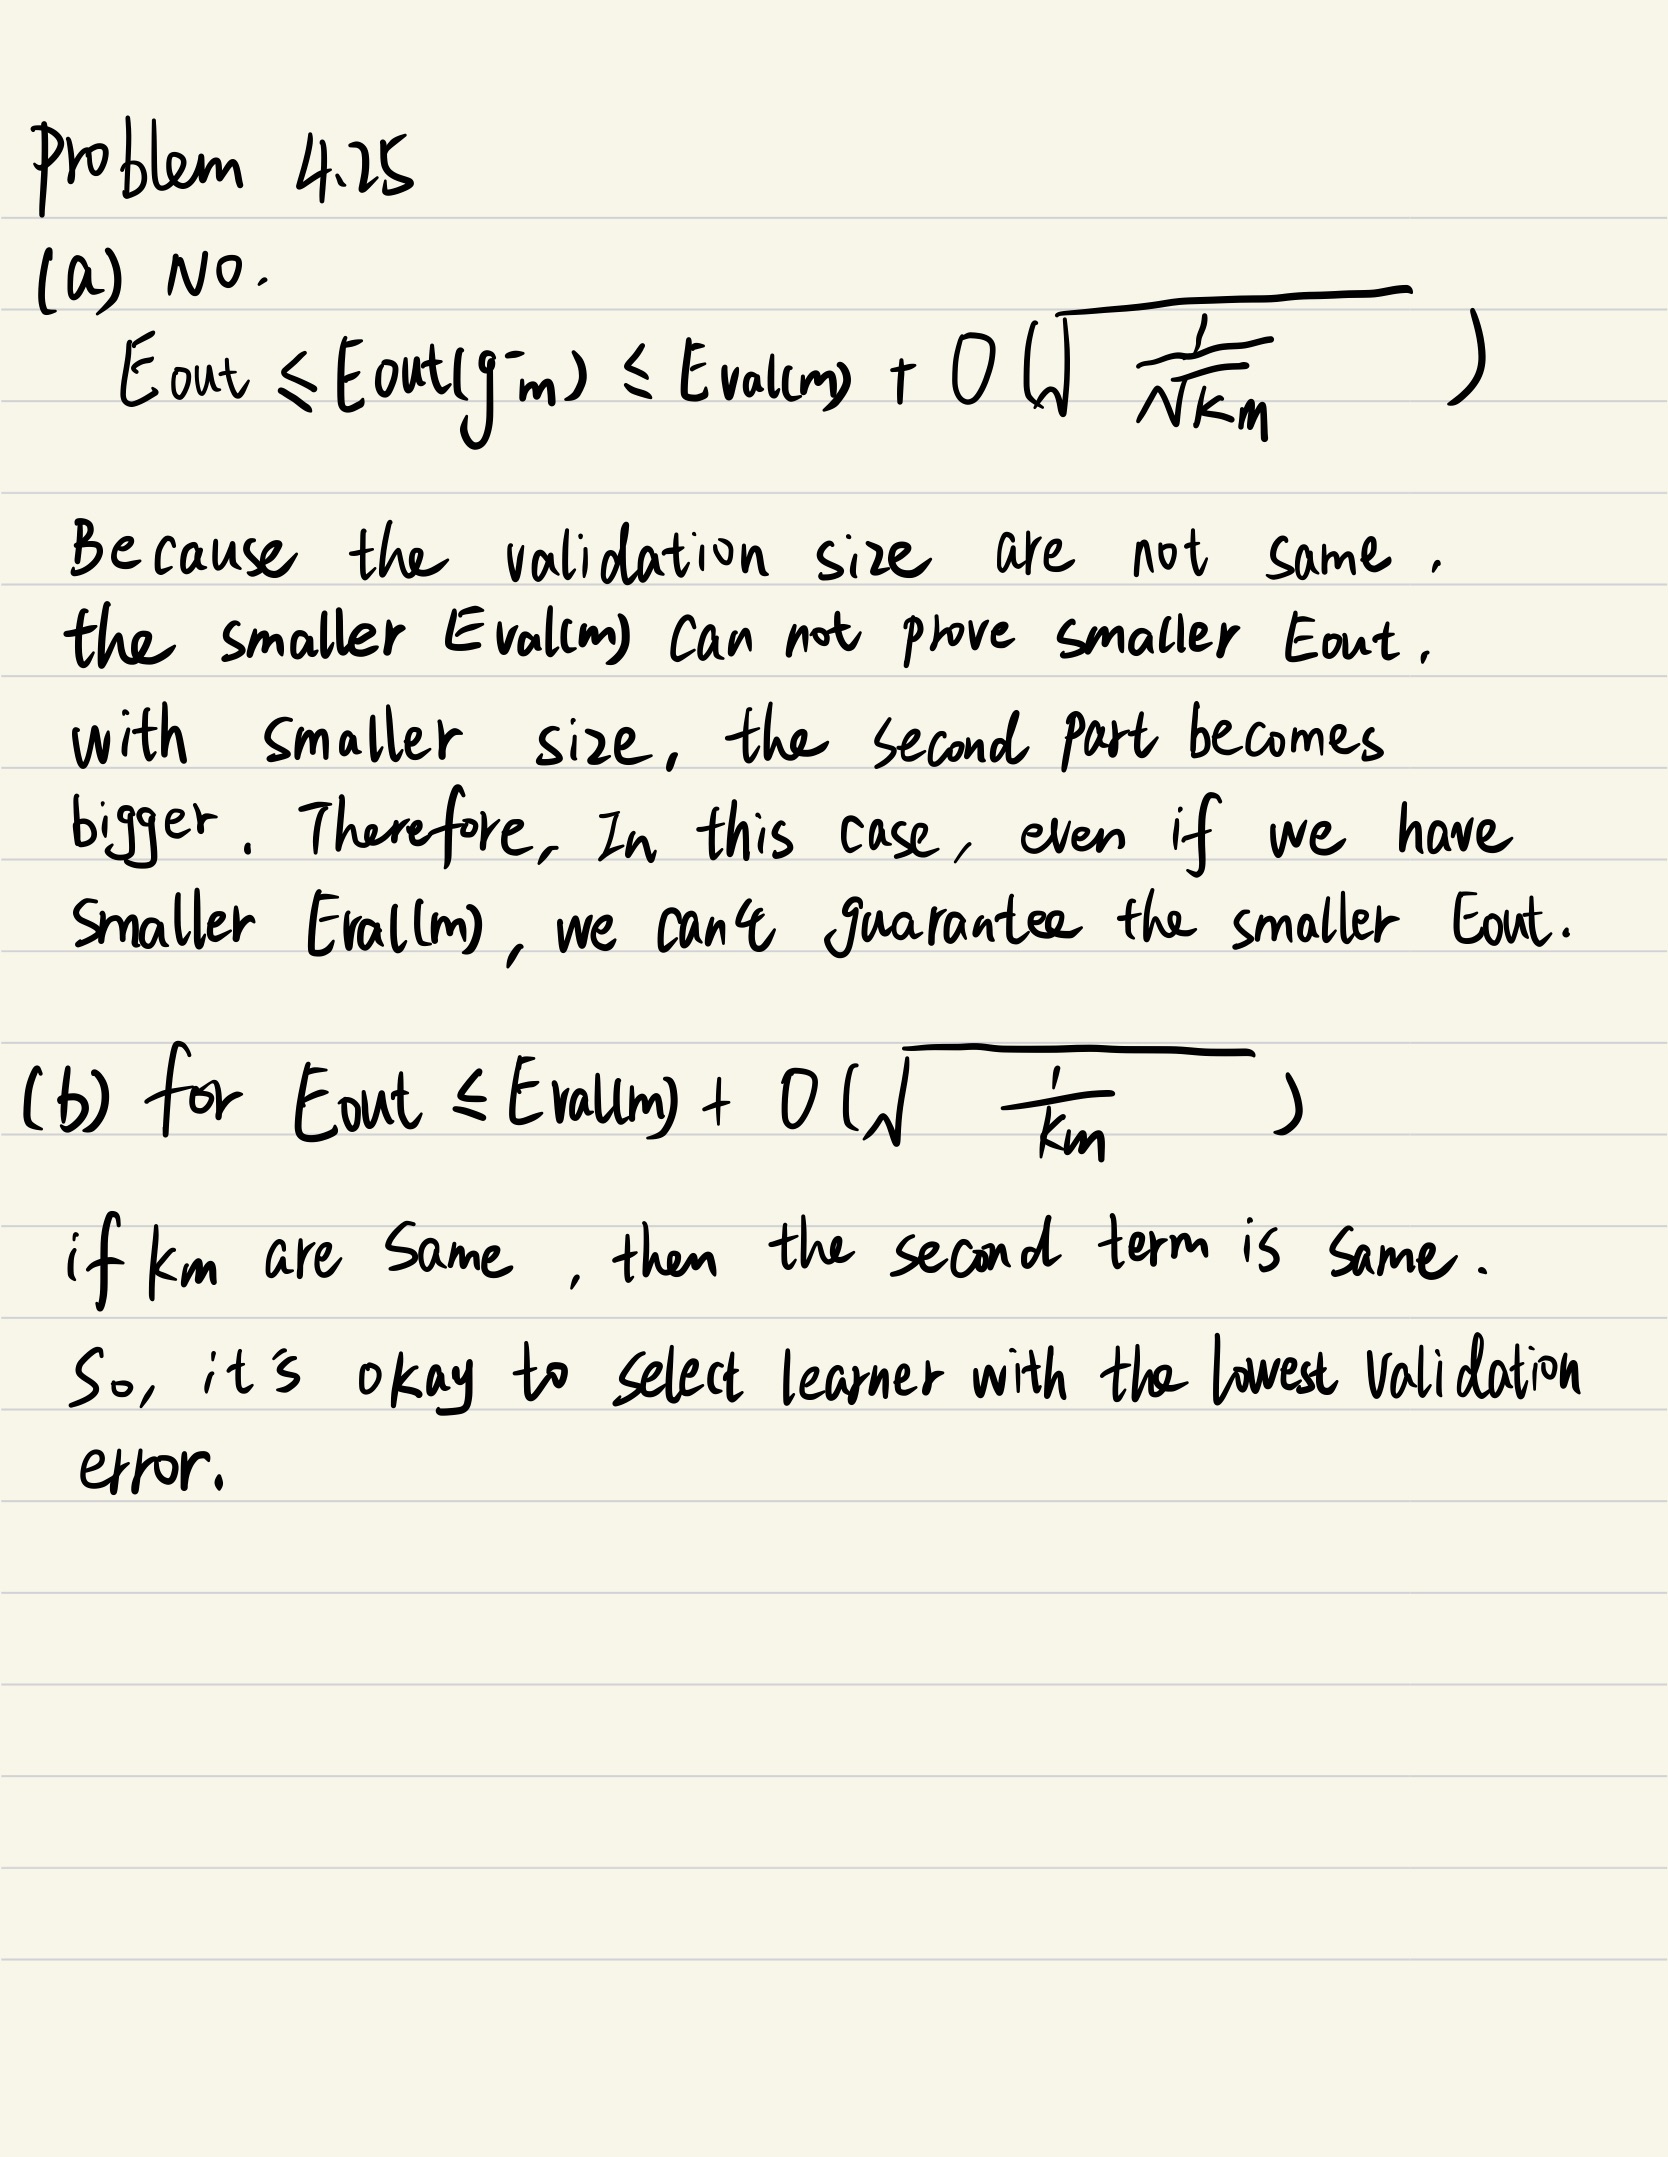 Problem 4.25
(a) No.
Eout ≤ Eout(g⁻m) ≤ Eval(m) + O(√(1/√Km))
Because the validation size are not same.
the smaller Eval(m) can not prove smaller Eout.
with smaller size, the second part becomes
bigger. Therefore, In this case, even if we have
smaller Eval(m), we can't guarantee the smaller Eout.
(b) for Eout ≤ Eval(m) + O(√(1/Km))
if Km are same, then the second term is same.
So, it's okay to select learner with the lowest validation
error.